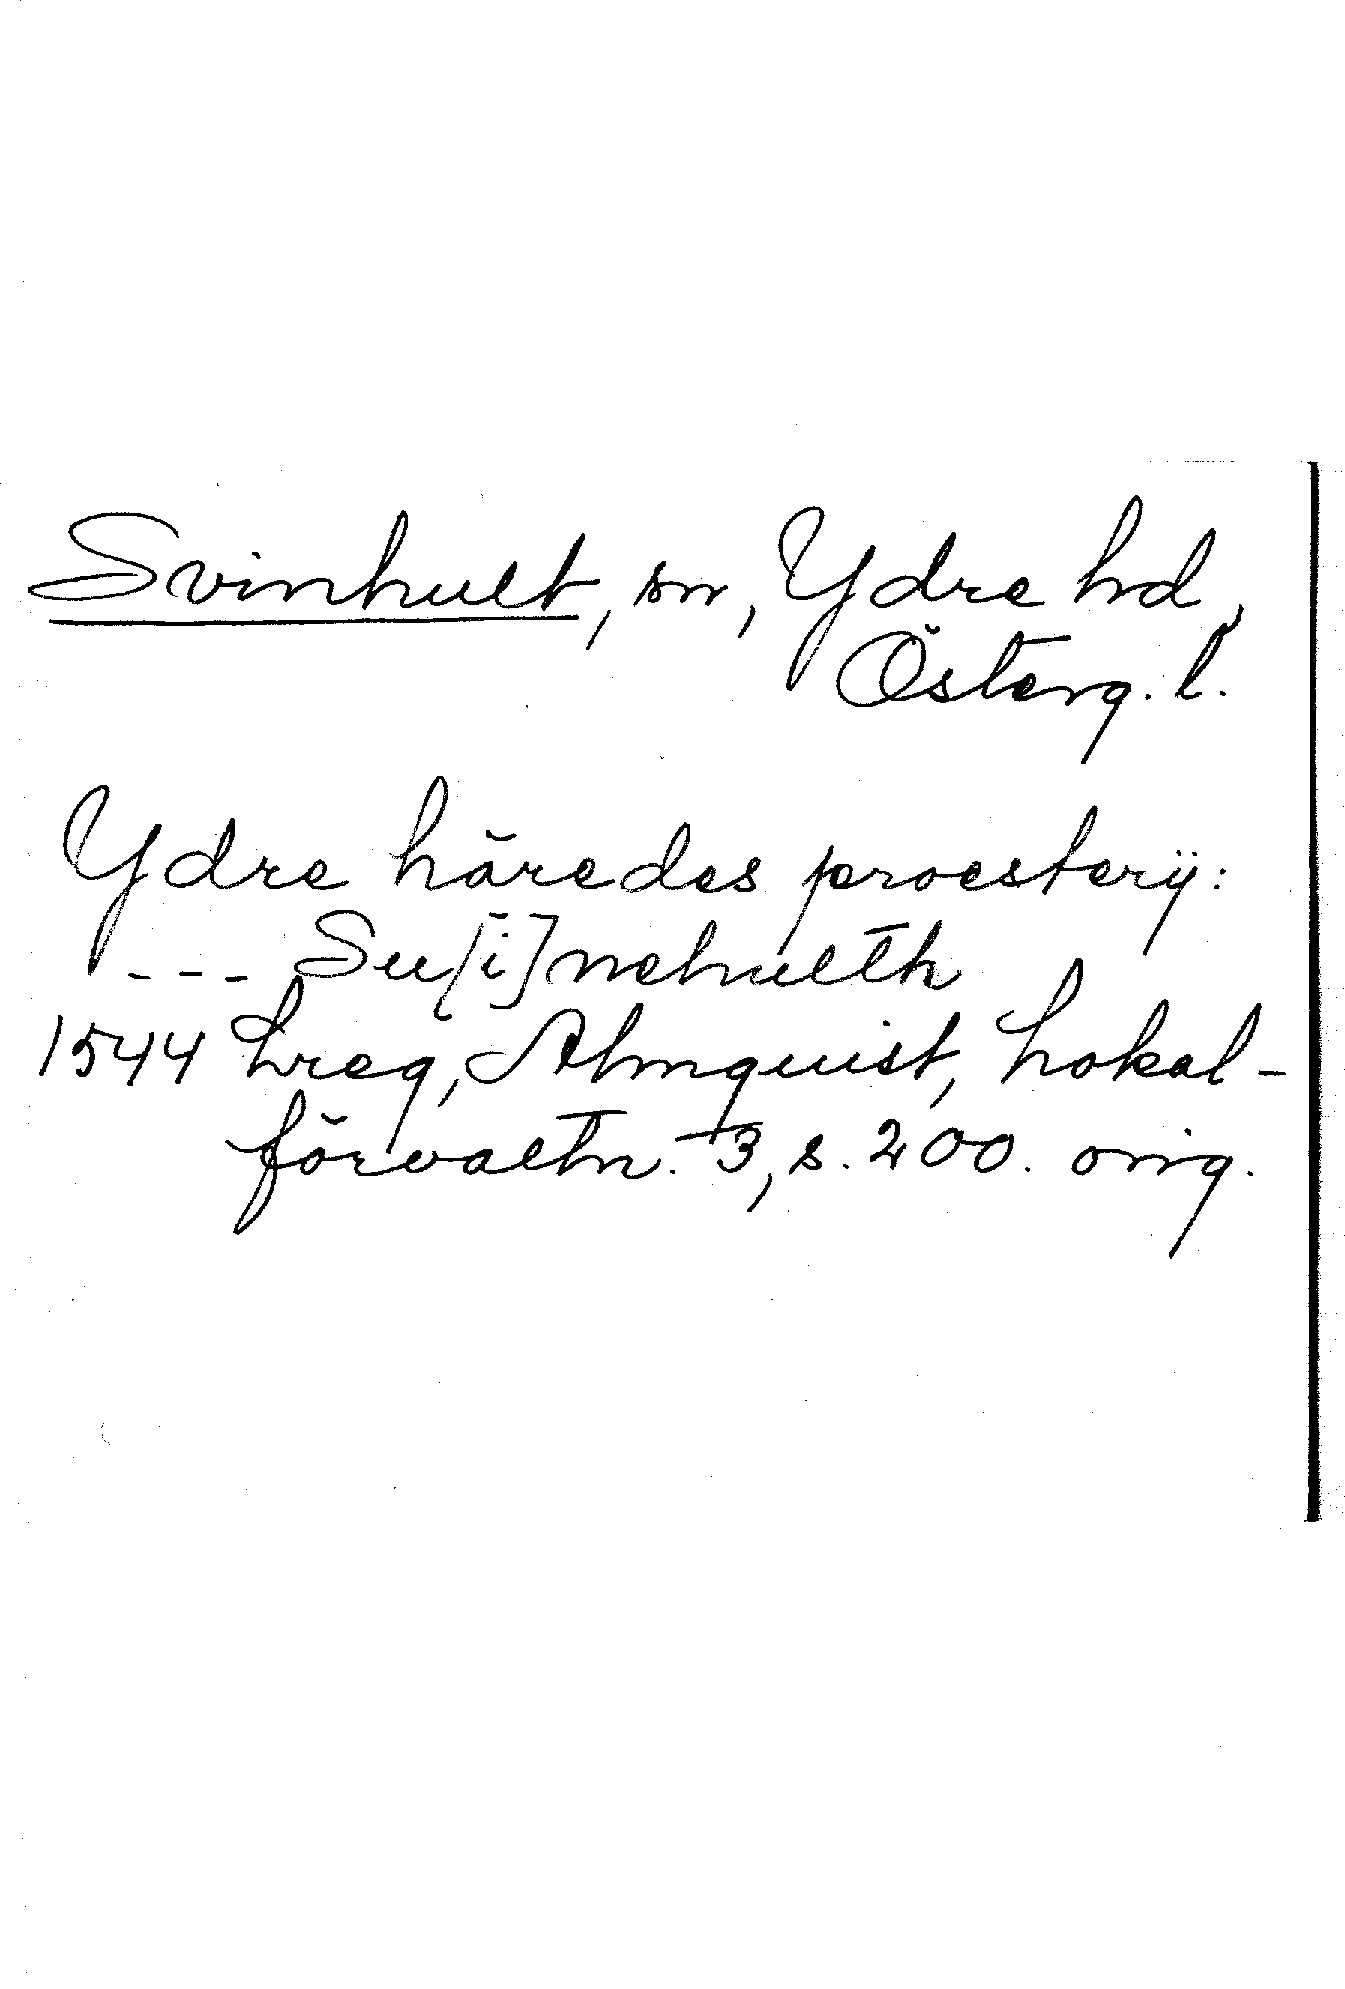 Svinhult, sn, Ydre hd,
Österg. l.
Ydre häredes proesterij:
--- Su[i]nehulth
1544 Lreg, Almquist, Lokal-
förvaltn. 3, s. 200. orig.